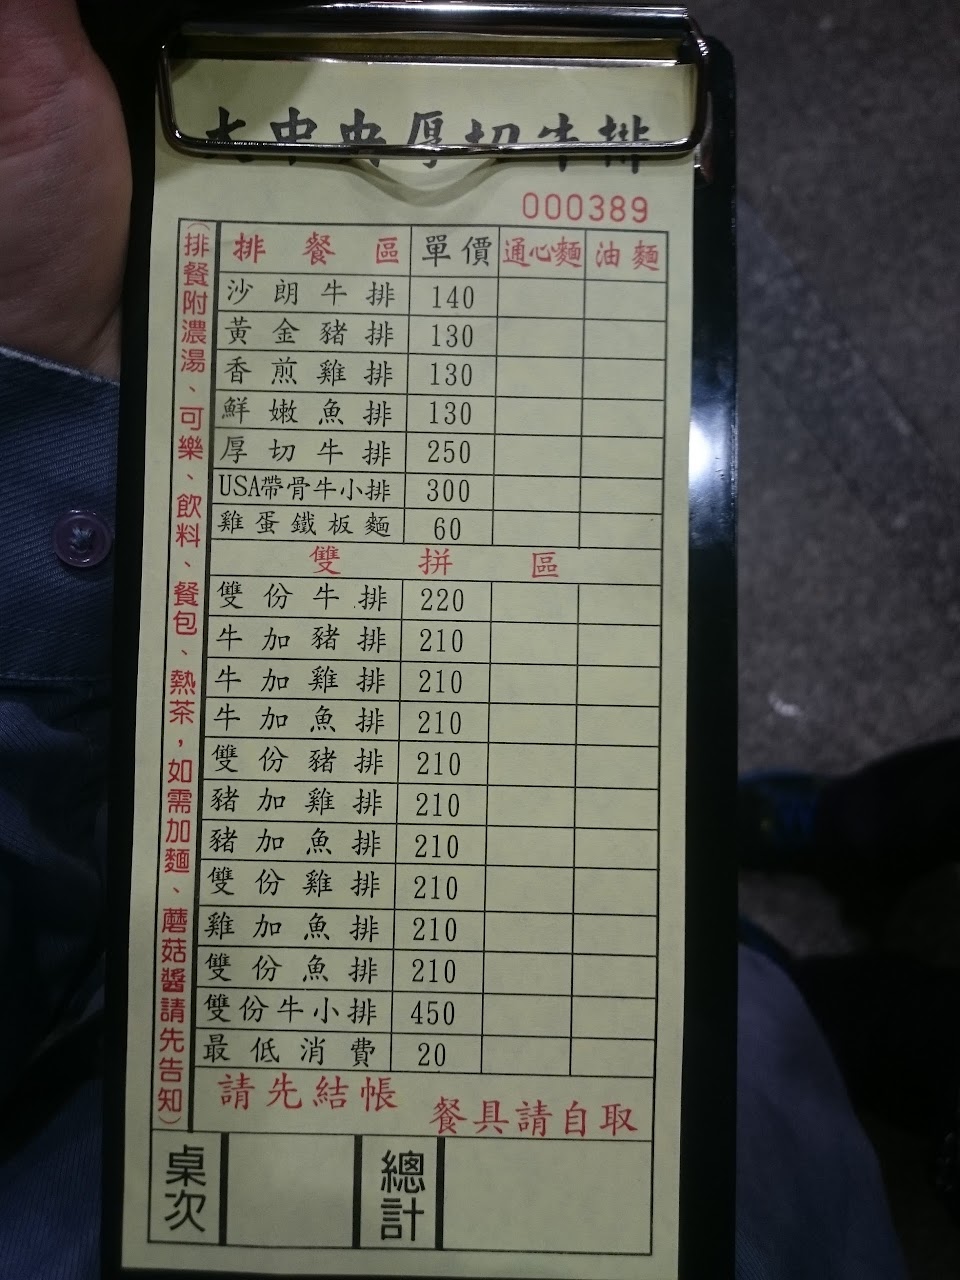 大中央厚切牛排
000389
排餐區 單價 通心麵 油麵
沙朗牛排 140
黃金豬排 130
香煎雞排 130
鮮嫩魚排 130
厚切牛排 250
USA帶骨牛小排 300
雞蛋鐵板麵 60
雙拼區
雙份牛排 220
牛加豬排 210
牛加雞排 210
牛加魚排 210
雙份豬排 210
豬加雞排 210
豬加魚排 210
雙份雞排 210
雞加魚排 210
雙份魚排 210
雙份牛小排 450
最低消費 20
請先結帳
餐具請自取
(排餐附濃湯、可樂、飲料、餐包、熱茶，如需加麵、蘑菇醬請先告知)
桌次 總計